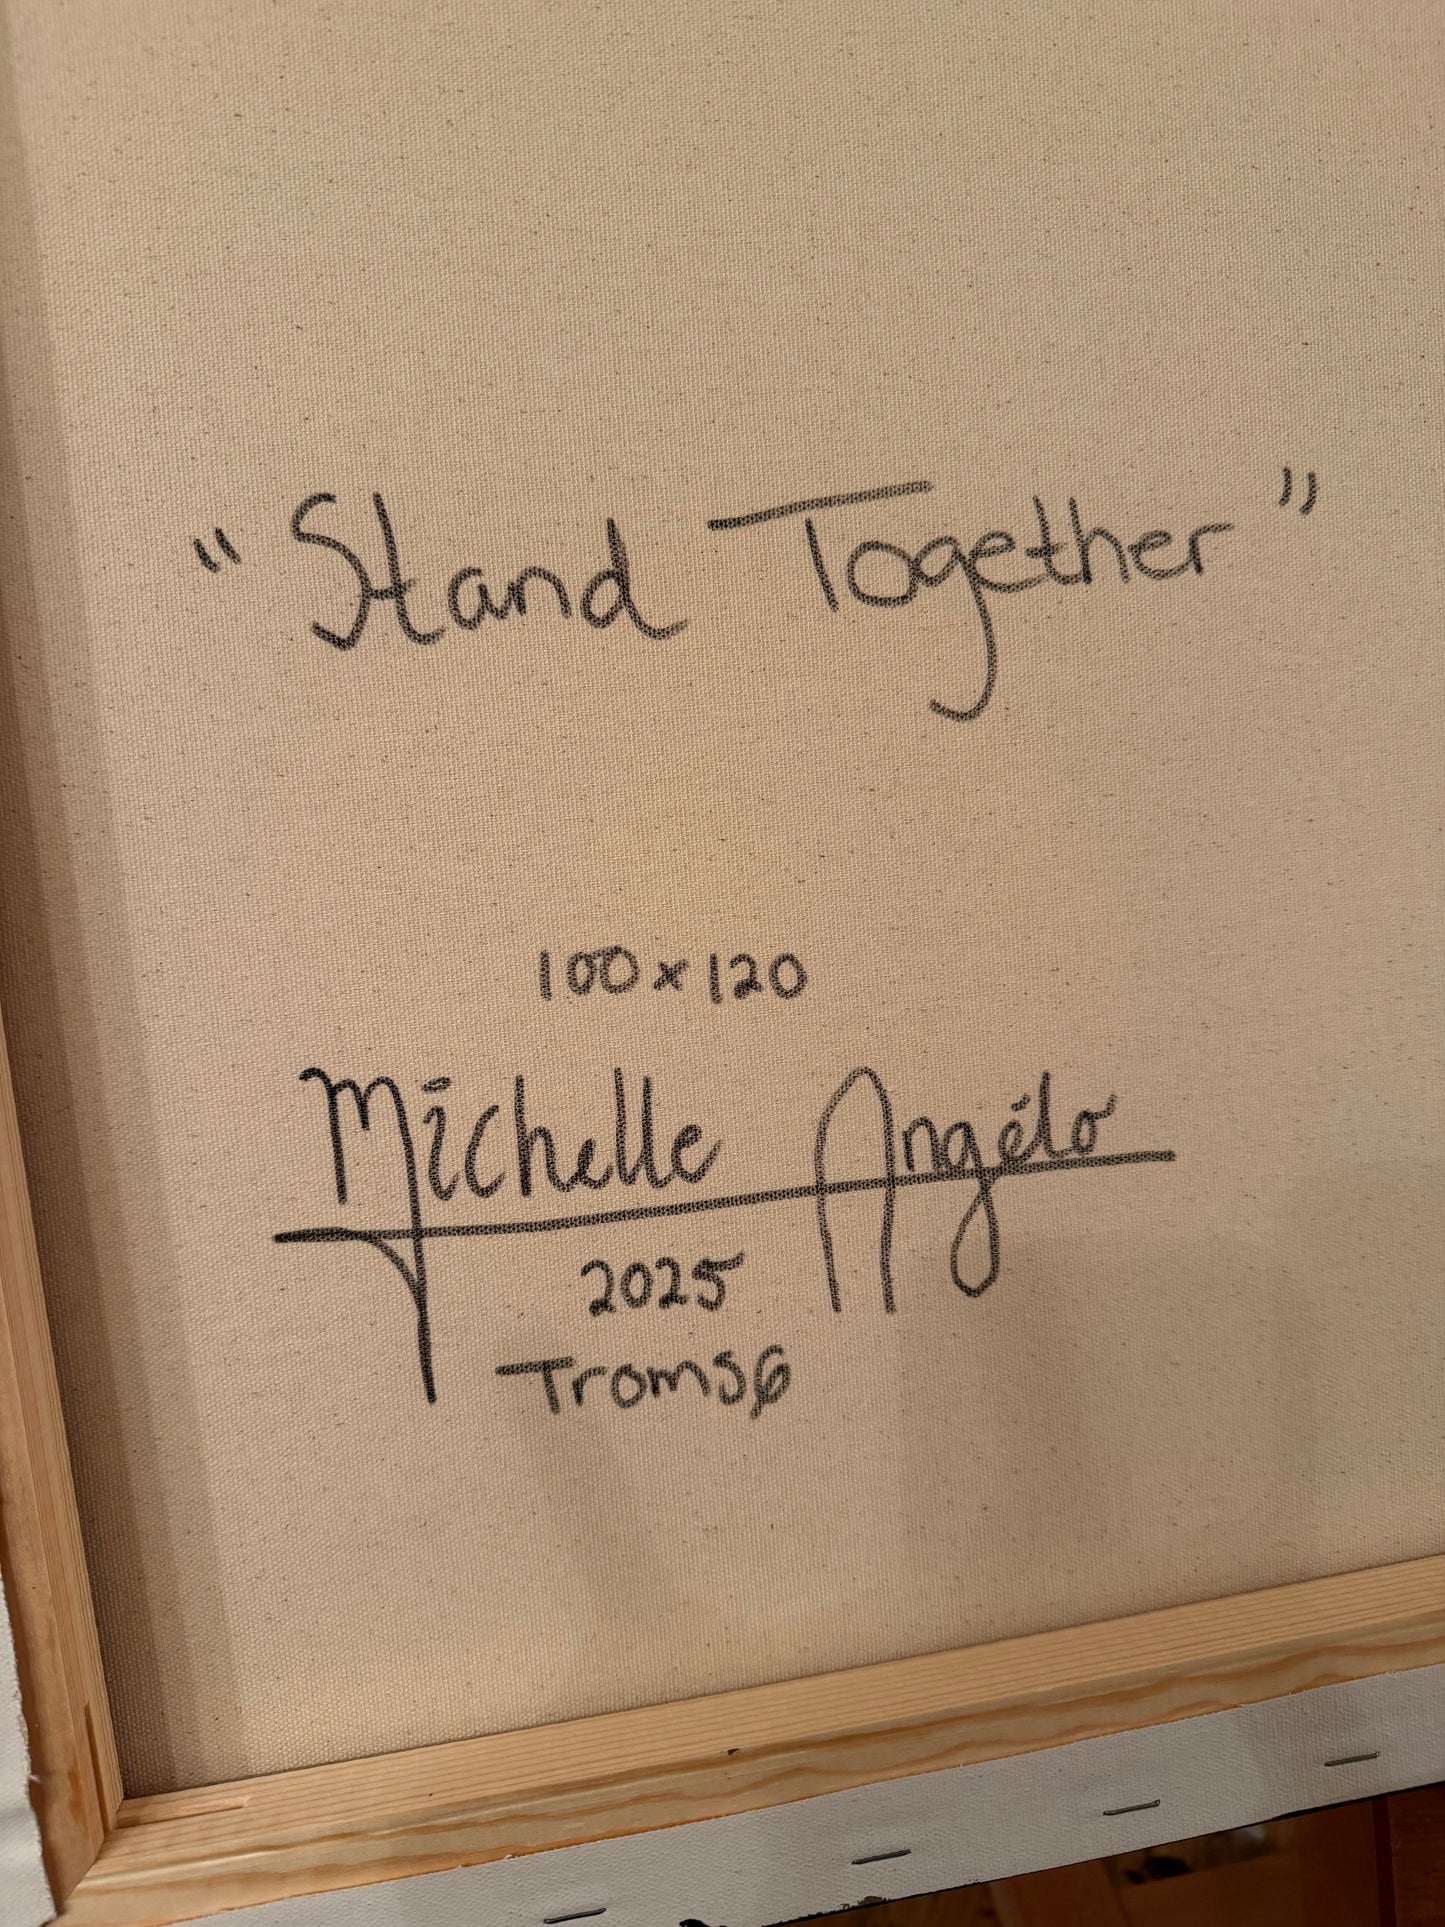 "Stand Together"
100x120
Michelle Angélo
2025
Tromsø